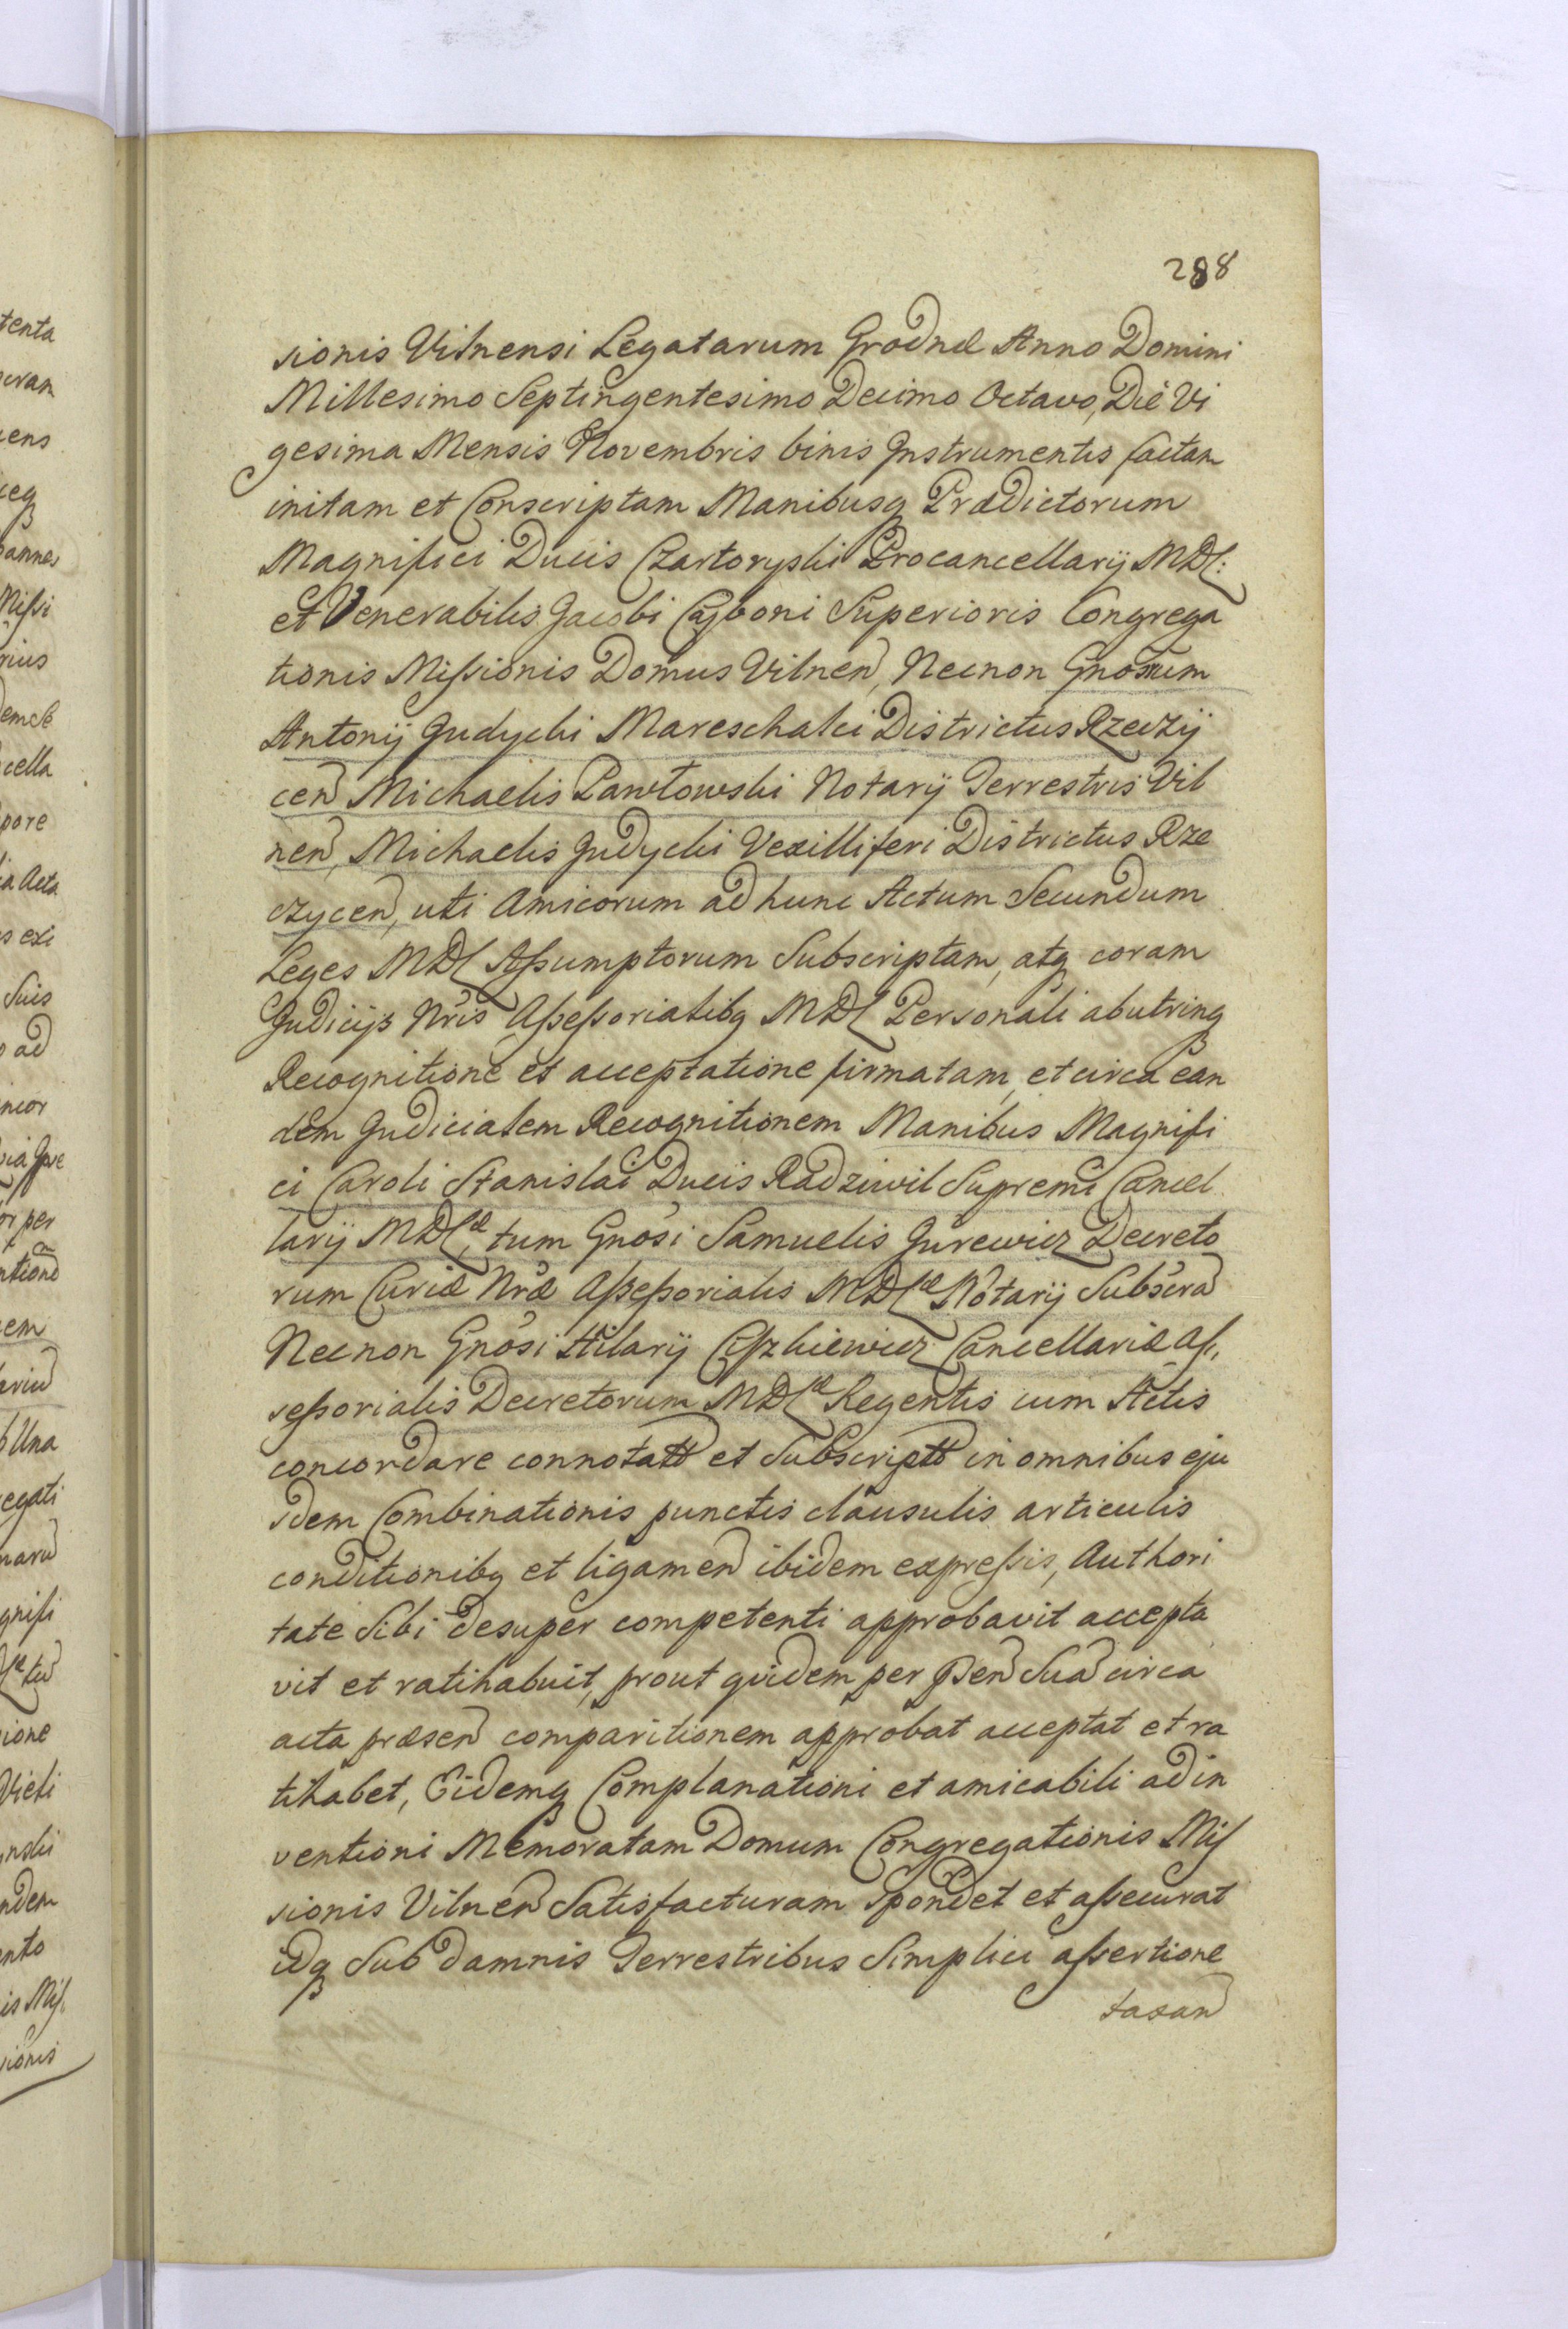 tenta
ens
ceq
Missi
rius
cella
pore
ia Acta
s exi
Suis
o ad
or per
em
Una
egati
gnifi
ione
ndem
ento
is Mis
sionis
288
sionis Vilnensi Legatarum Grodnæ Anno Domini
Millesimo Septingentesimo Decimo Octavo, Die Vi
gesima Mensis Novembris binis Instrumentis factam
initam et Conscriptam Manibusq Prædictorum
Magnifici Ducis Czartoryski Procancellarij MDL:
et Venerabilis Jacobi Superioris Congrega
tionis Missionis Domus Vilnen, Necnon Gnosrum
Antonij Judycki Mareschalci Districtus Rzeczij
cen Michaelis Pawłowski Notarij Terrestris Vil
nen, Michaelis Judycki Vexilliferi Districtus Rze
czycen, uti Amicorum ad hunc Actum Secundum
Leges MDL Assumptorum Subscriptam, atq coram
Judicijs Nris Assessorialibq MDL Personali abutrinq
Recognitione et acceptatione firmatam, et circa ean
dem Judicialem Recognitionem Manibus Magnifi
ci Caroli Stanislai Ducis Radziwil Supremi Cancel
larij MDLæ, tum Gnosi Samuelis Jurewicz Decreto
rum Curiæ Nræ Assessorialis MDLæ Notarij Subscra
Necnon Gnosi Hilarij Ciszkiewicz Cancellariæ As,
sessorialis Decretorum MDLæ Regentis cum Actis
concordare connotatt et Subscriptt in omnibus eju
sdem Combinationis punctis clausulis articulis
conditionibq et ligamen ibidem expressis, Authori
tate Sibi desuper competenti approbavit accepta
vit et ratihabuit, prout quidem per Psen Sua circa
acta præsen comparitionem approbat acceptat et ra
tihabet, Eidemq Complanationi et amicabili adin
ventioni Memoratam Domum Congregationis Mis
sionis Vilnen Satisfacturam spondet et assecurat
idq Sub damnis Terrestribus Simplici assertione
taxan